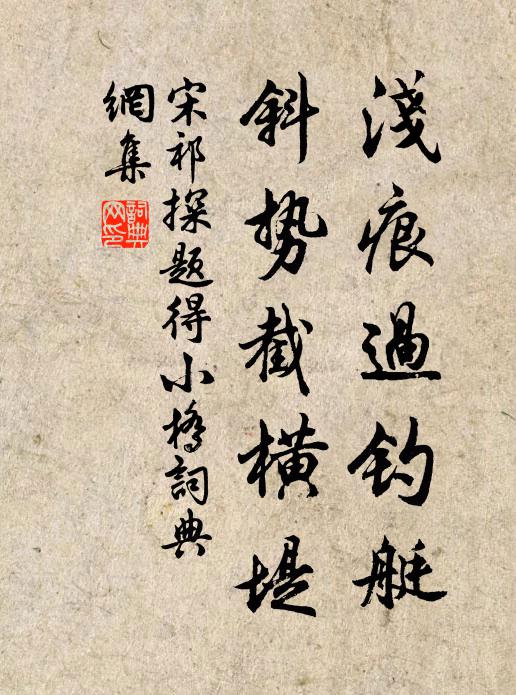 淺痕過釣艇
斜勢截橫堤
宋祁探題得小橋詞典
網集
詞典
网印